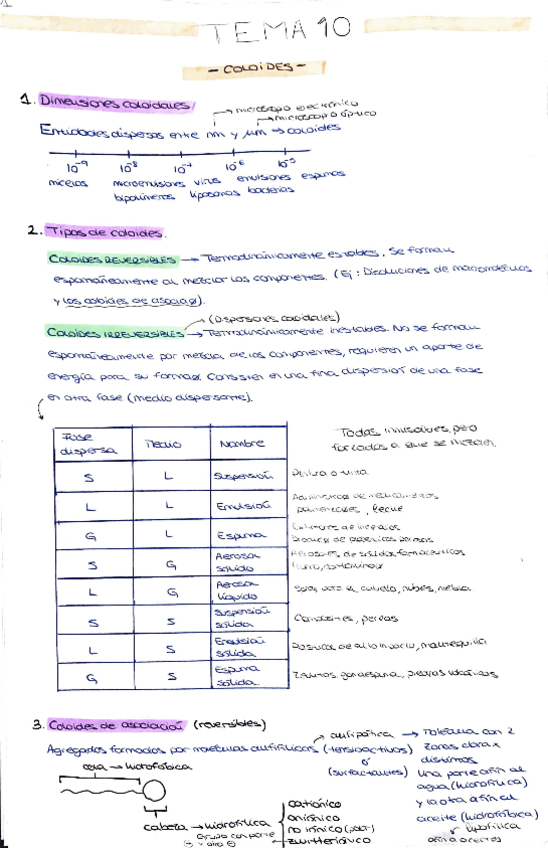 1
TEMA 10
- COLOIDES -
1. Dimensiones coloidales
microscopio electrónico
microscopio óptico
Entidades dispersas entre nm y µm → coloides
10⁻⁹ 10⁻⁸ 10⁻⁷ 10⁻⁶ 10⁻⁵
micelas microemulsiones virus emulsiones espumas
biopolímeros liposomas bacterias
2. Tipos de coloides.
COLOIDES REVERSIBLES → Termodinámicamente estables. Se forman
espontáneamente al mezclar los componentes. (Ej: Disoluciones de macromoléculas
y los coloides de asociación).
(Dispersiones coloidales)
COLOIDES IRREVERSIBLES → Termodinámicamente inestables. No se forman
espontáneamente por mezcla de los componentes, requieren un aporte de
energía para su formación. Consisten en una fina dispersión de una fase
en otra fase (medio dispersante).
Fase dispersa Medio Nombre
Todas inmiscibles, pero
forzadas a que se mezclen
S L Suspensión Pintura o tinta
L L Emulsión Administrar de medicamentos
parenterales, leche
G L Espuma Extintores de incendios
S G Aerosol sólido Aerosoles de sólidos farmacéuticos
Humo, contaminac
L G Aerosol líquido Spray para el cabello, nubes, niebla
S S Suspensión sólida perlas
L S Emulsión sólida mantequilla
G S Espuma sólida gomaespuma, piedras volcánicas
3. Coloides de asociación (reversibles)
anfipática → Molécula con 2
Agregados formados por moléculas anfifílicas (tensioactivos) zonas claras
ó distintas
(surfactantes) Una parte afín al
cola → hidrofóbica agua (hidrofílica)
y la otra afín al
aceite (hidrofóbica)
lipofílica
afín a aceites
cabeza → hidrofílica
Grupo con parte
⊕ y otra ⊖
catiónico
aniónico
no iónico (polar)
zwitteriónico